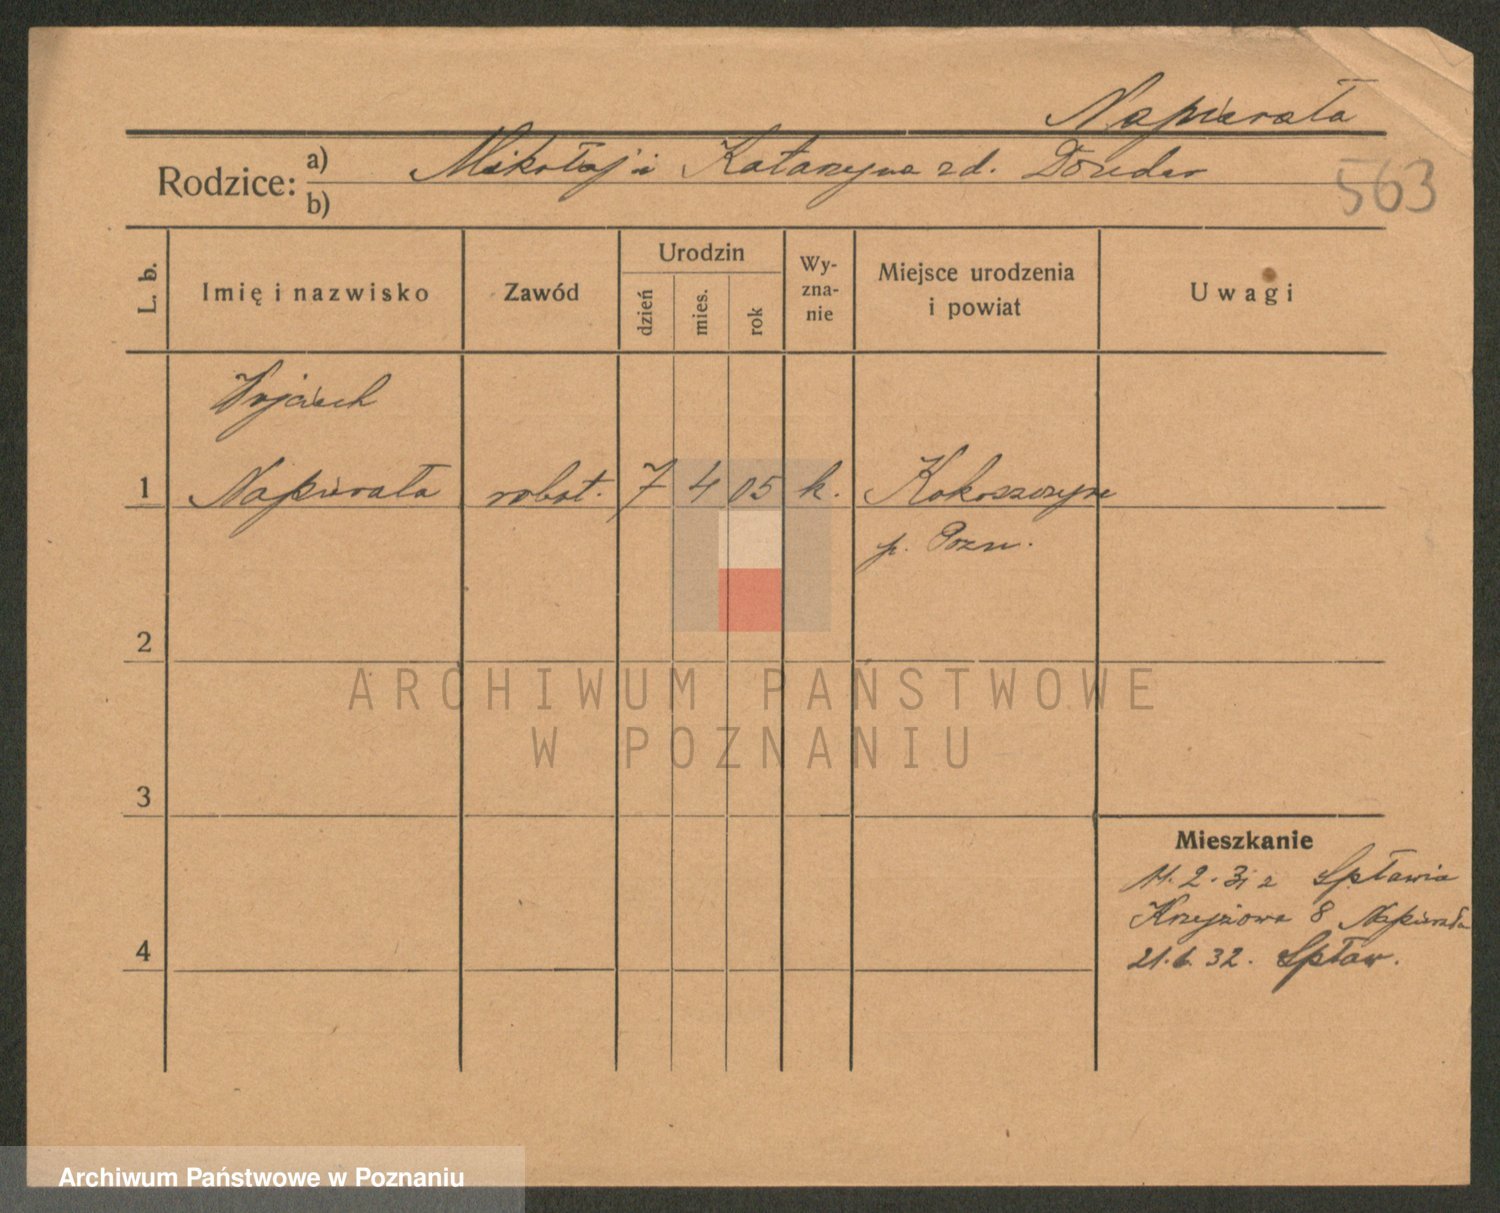 Napierała
Rodzice: a) Mikołaj i Katarzyna zd.
b)
563
L. b.
Imię i nazwisko
Zawód
Urodzin
dzień
mies.
rok
Wy-
zna-
nie
Miejsce urodzenia
i powiat
Uwagi
Wojciech
1 Napierała robot. 7 4 05 k. Kokoszczyn
p. Pozn.
2
ARCHIWUM PAŃSTWOWE
W POZNANIU
3
Mieszkanie
11.2.31 z Spławia
Krzyżowa 8 Napierała
4
21.6.32. Spław.
Archiwum Państwowe w Poznaniu